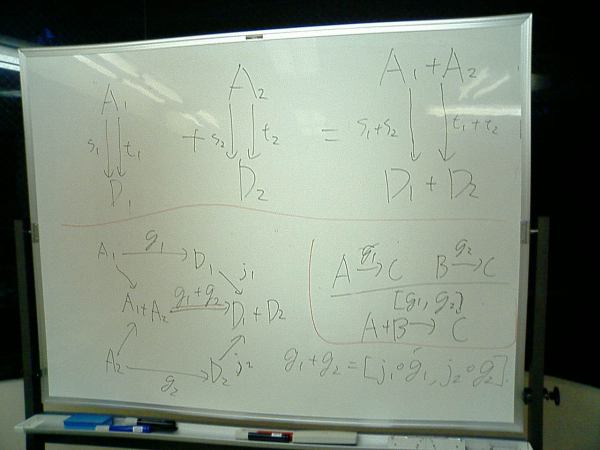 A₁ + A₂ = A₁ + A₂
s₁ t₁ s₂ t₂ s₁+s₂ t₁+t₂
D₁ D₂ D₁ + D₂
A₁ g₁ → D₁ j₁
A₁+A₂ g₁+g₂ → D₁+D₂
A₂ g₂ → D₂ j₂
A g₁ → C B g₂ → C
[g₁, g₂]
A+B → C
g₁+g₂ = [j₁∘g₁, j₂∘g₂].